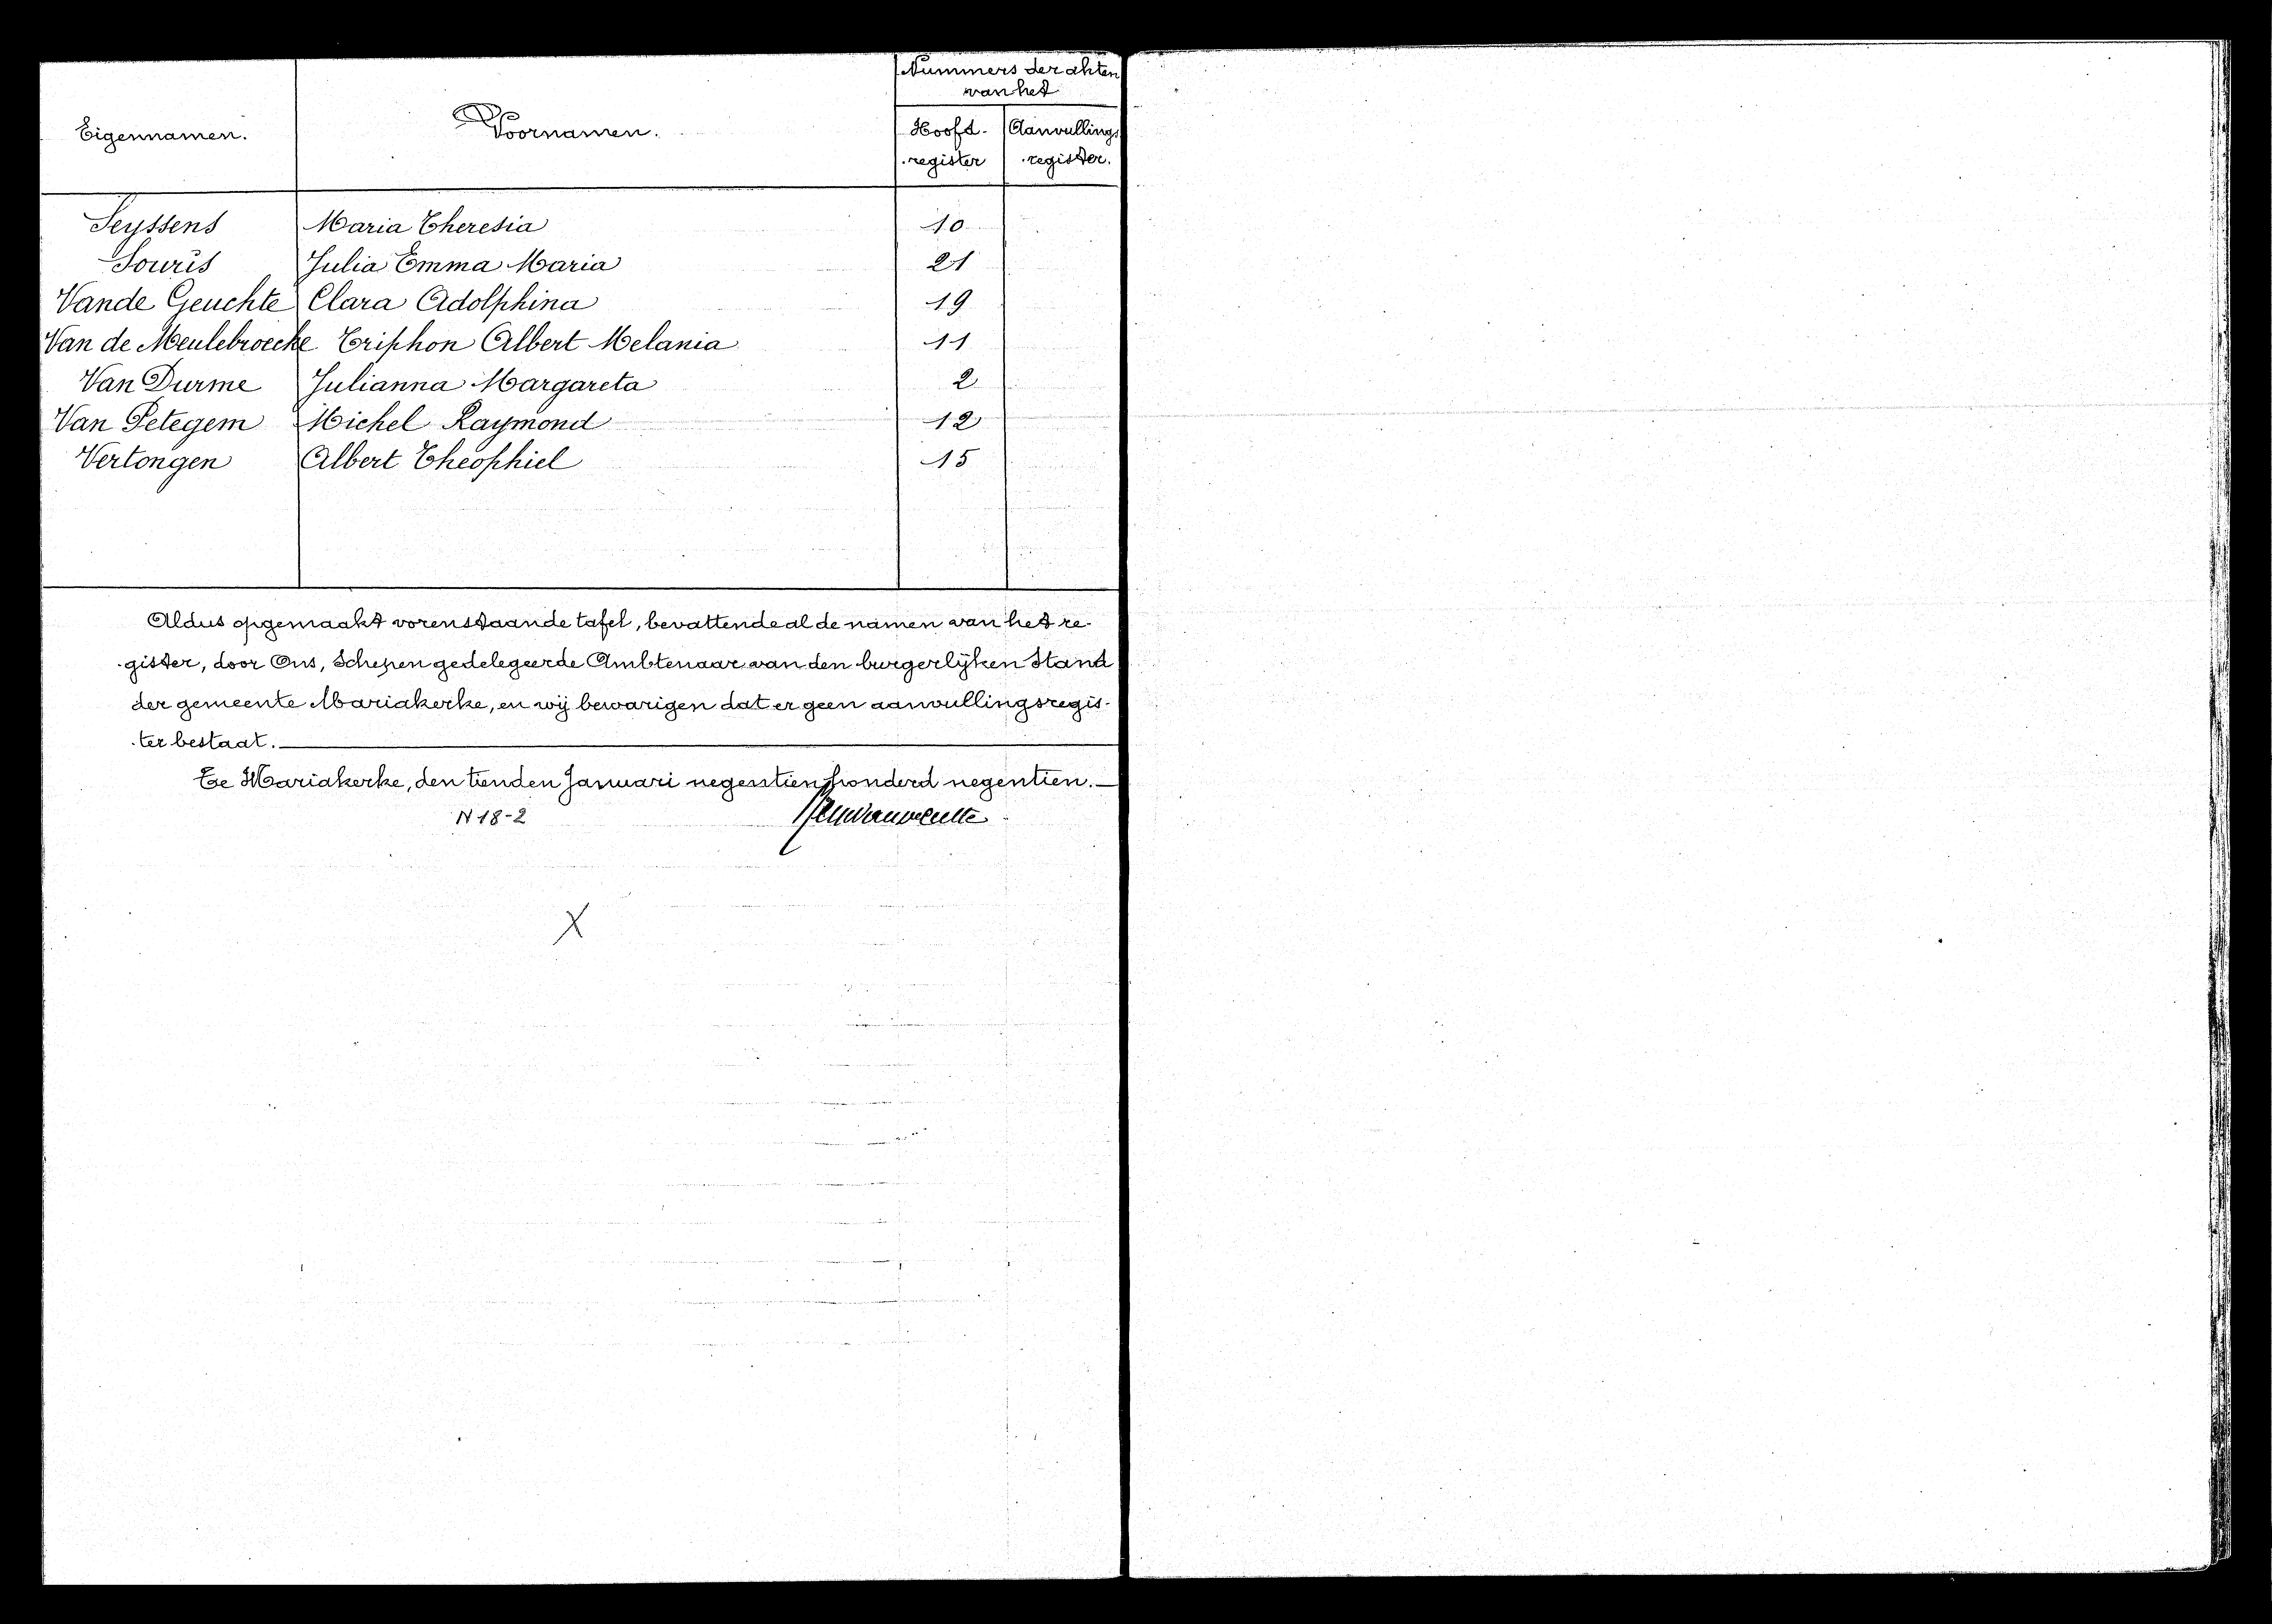 Eigennamen. Voornamen. Nummers der akten
van het
Hoofd- Aanvullings
register register.
Seyssens Maria Theresia 10
Souris Julia Emma Maria 21
Vande Geuchte Clara Adolphina 19
Van de Meulebroecke Triphon Albert Melania 11
Van Durme Julianna Margareta 2
Van Petegem Michel Raymond 12
Vertongen Albert Theophiel 15
Aldus opgemaakt vorenstaande tafel, bevattende al de namen van het re-
gister, door Ons, Schepen gedelegeerde Ambtenaar van den burgerlijken Stand
der gemeente Mariakerke, en wij bewarigen dat er geen aanvullingsregis-
ter bestaat.
Te Mariakerke, den tienden Januari negentien honderd negentien.
N 18-2
X